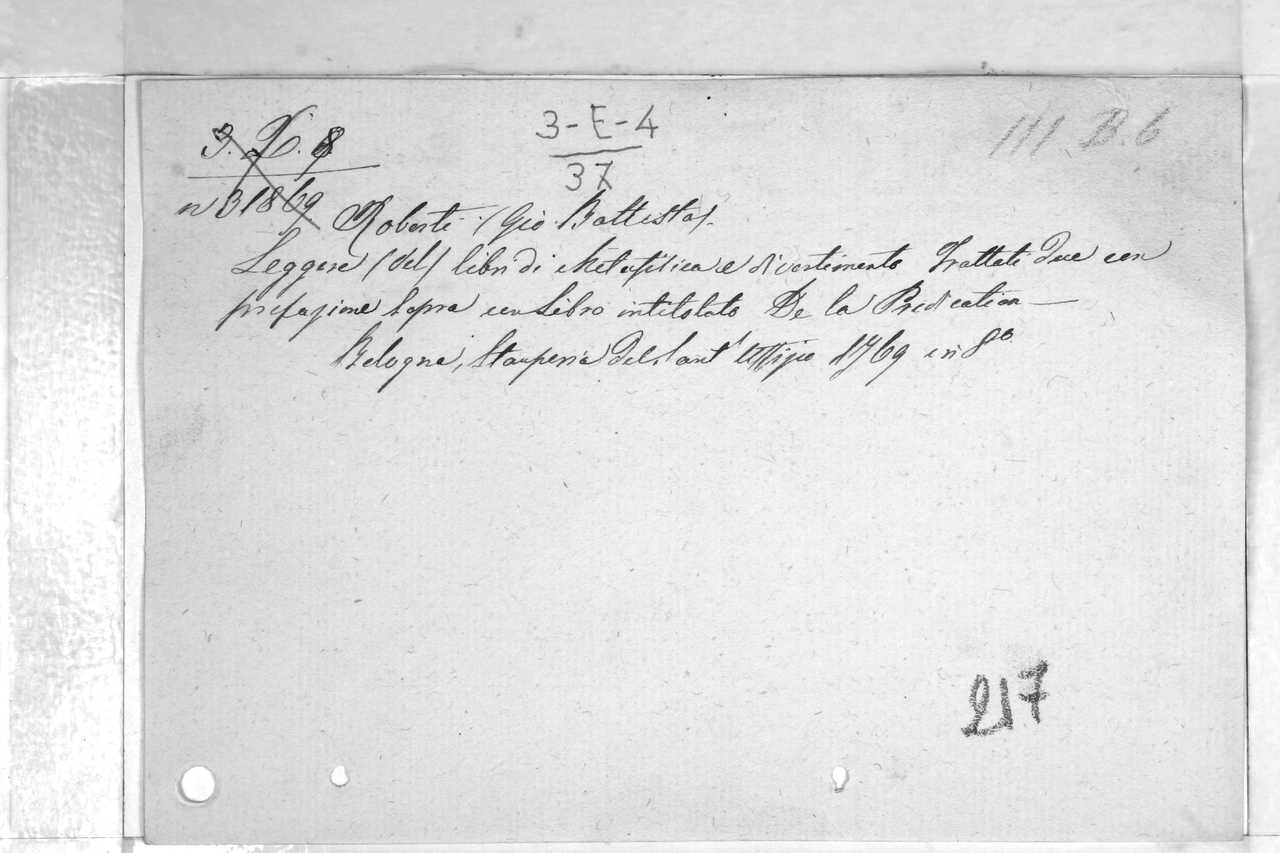 3. X. 8
3-E-4
37
III B. 6
n 31869
Roberti (Gio Battista).
Leggere (del) libri di Metafisica e divertimento Trattati due con
prefazione sopra un Libro intitolato De la Predication —
Bologna, Stamperia del Sant' Uffizio 1769 in 8°
217